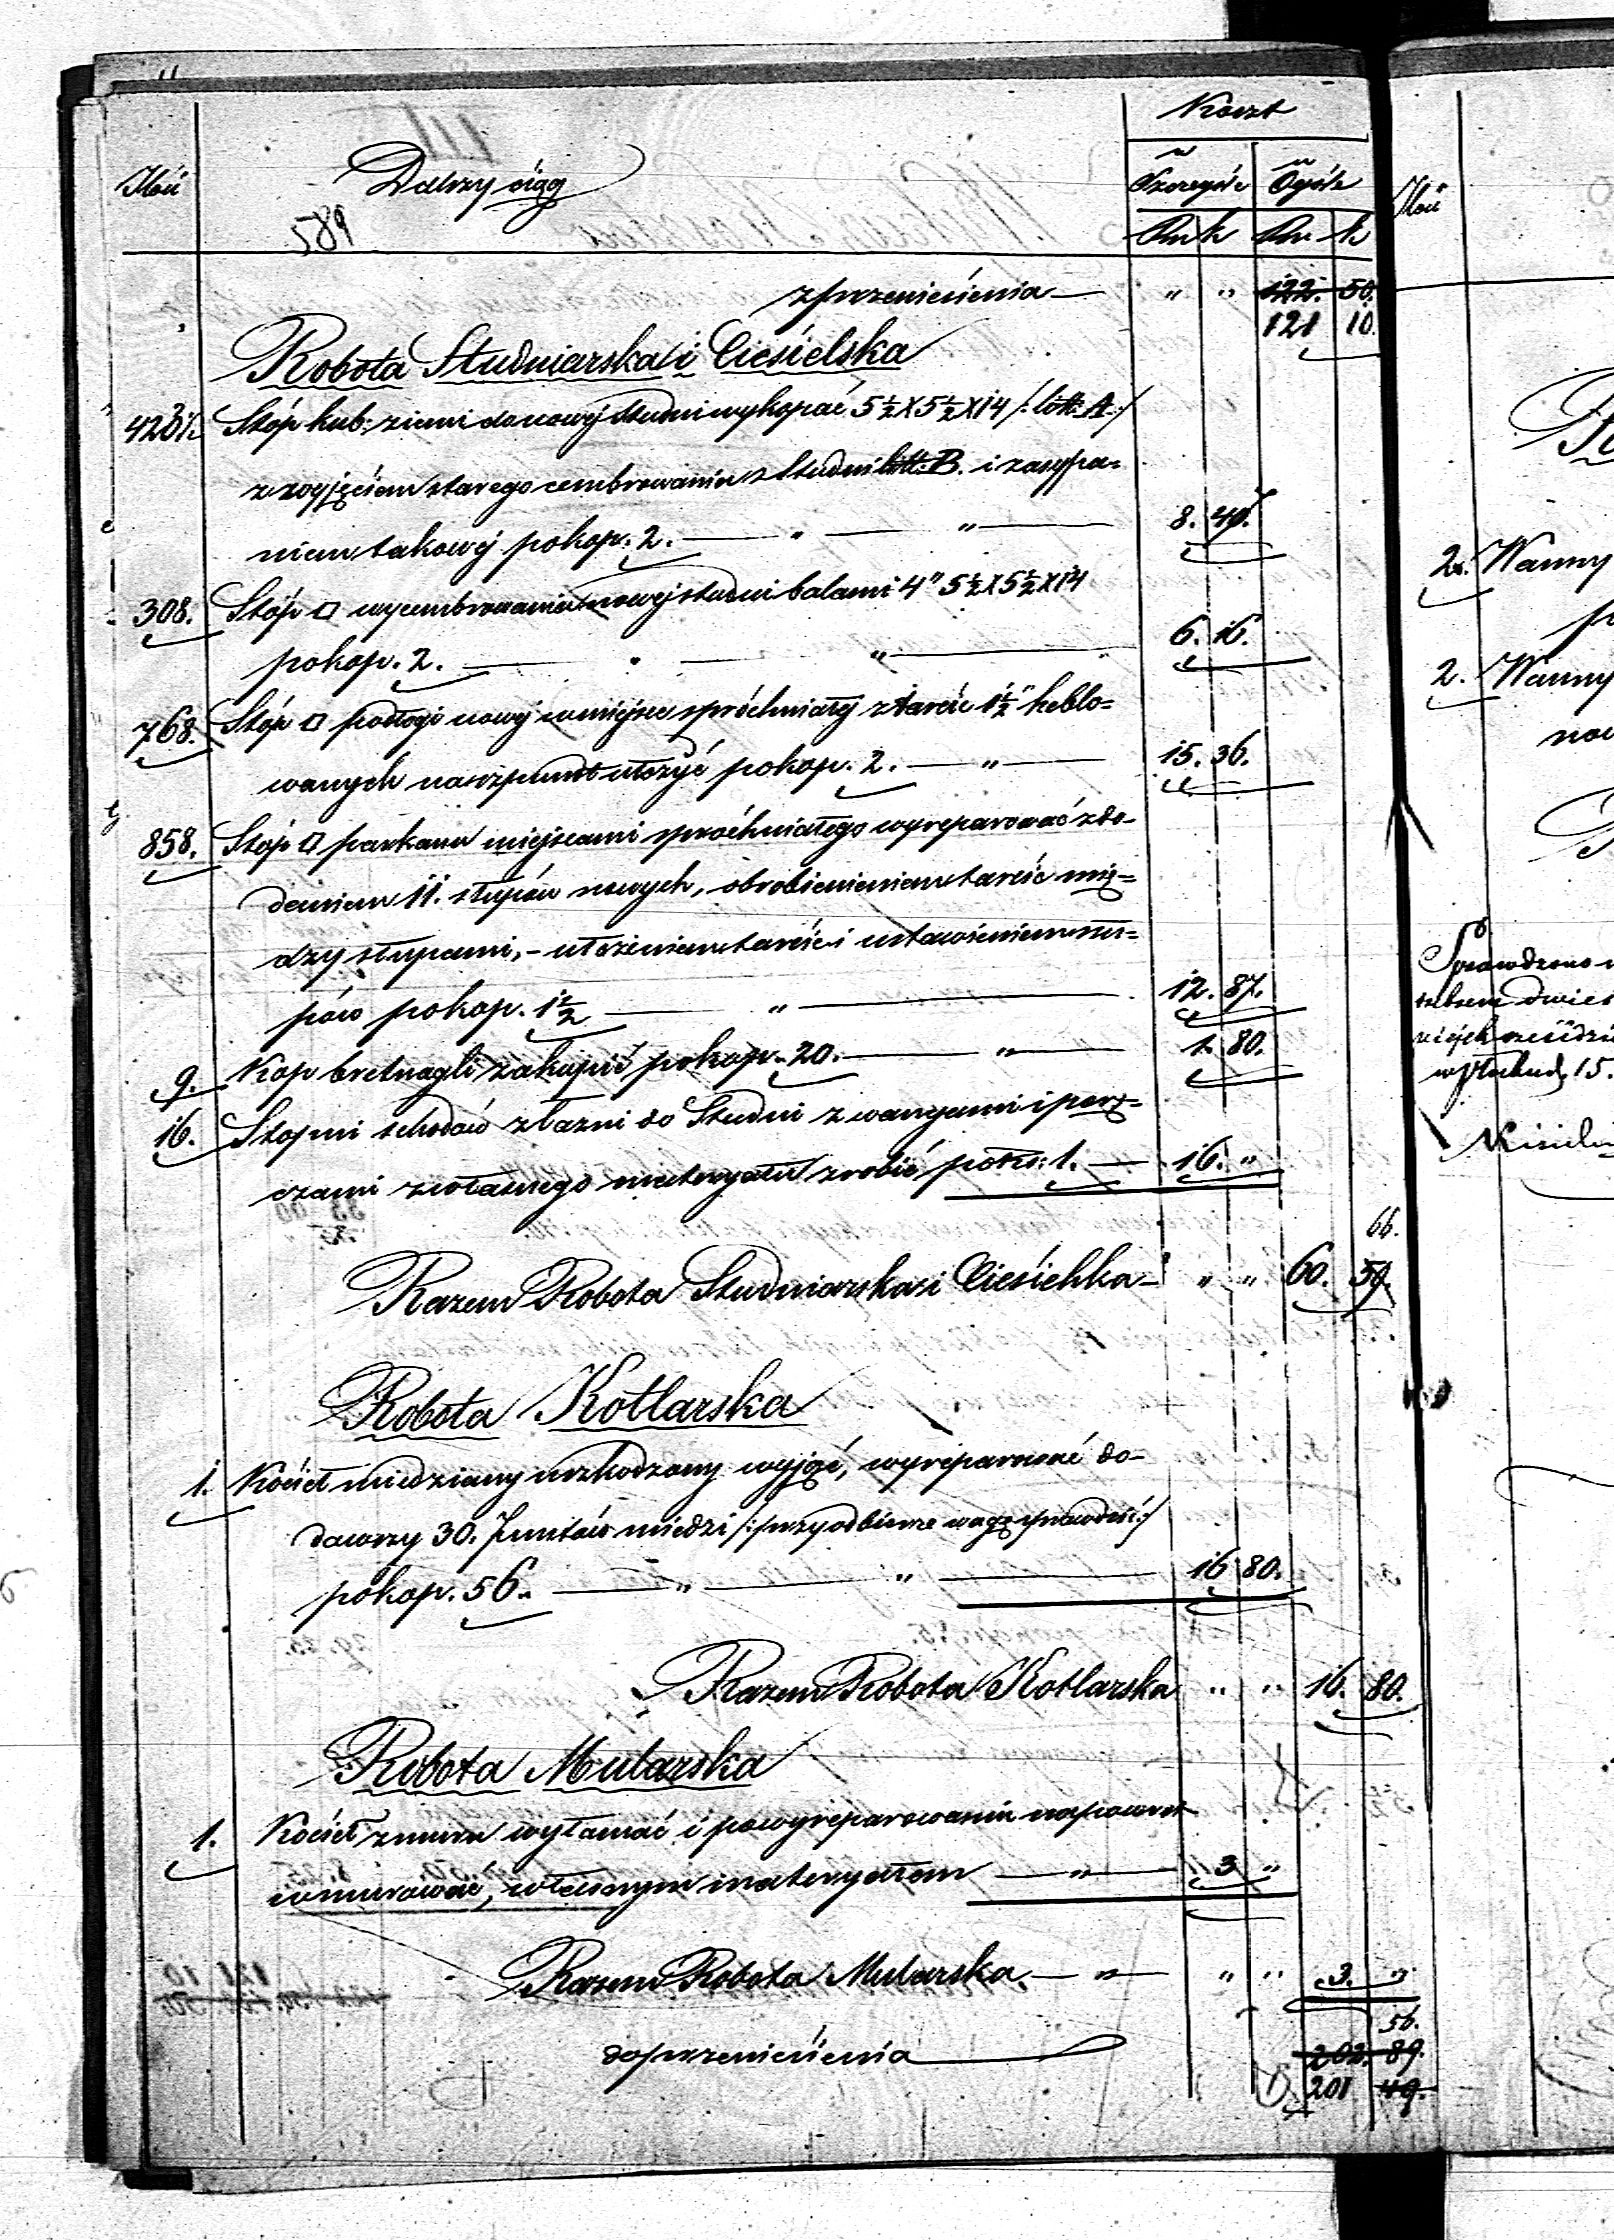 Koszt
Ilość Dalszy ciąg w Szczególe w Ogóle
589
Rs. k Rs. k
z przeniesienia — " " 122. 50.
121 10.
Robota Studniarska i Ciesielska
423½ Stóp kub: ziemi do nowej studni wykopać 5½ X 5½ X 14 /: litt: A :/
z wyjęciem starego cembrowania z Studni litt: B. i zasypa=
niem takowej po kop. 2. — " — " — 8. 47.
308. Stóp □ wycembrowania nowej studni balami 4" 5½ X 5½ X 14
po kop. 2. — " — " — 6. 16.
768. Stóp □ podłogi nowej w miejsce spróchniałej z tarcic 1½" heblo=
wanych na szpunt ułożyć po kop. 2. — " — 15. 36.
858. Stóp □ parkanu miejscami spróchniałego wyreparować z do-
daniem 11. słupów nowych, obrobieniem tarcic mię=
dzy słupami, - ułożeniem tarcic i ustawieniem słu=
pów po kop. 1½ — " — 12. 87.
9. Kop bretnagli zakupić po kop. 20. — " — 1. 80.
16. Stopni schodów z łazni do Studni z wangami i porę=
czami z własnego materyału zrobić po rs: 1. — 16. "
66.
Razem Robota Studniarska i Ciesielska — " " 60. 59.
Robota Kotlarska
1. Kocieł miedziany uszkodzony wyjąć, wyreparować do-
dawszy 30. funtów miedzi /: przy odbiorze wagę sprawdzić :/
po kop. 56. — " — " — 16 80.
Razem Robota Kotlarska " " 16. 80.
Robota Mularska
1. Kocieł z muru wyłamać i po wyreparowaniu napowrót
wmurować, własnym materyałem — " — 3 "
Razem Robota Mularska — " — " " 3. "
56.
do przeniesienia 202. 89.
201 49.
Ilość
2. Wanny
2. Wanny
Sprawdzono
15.